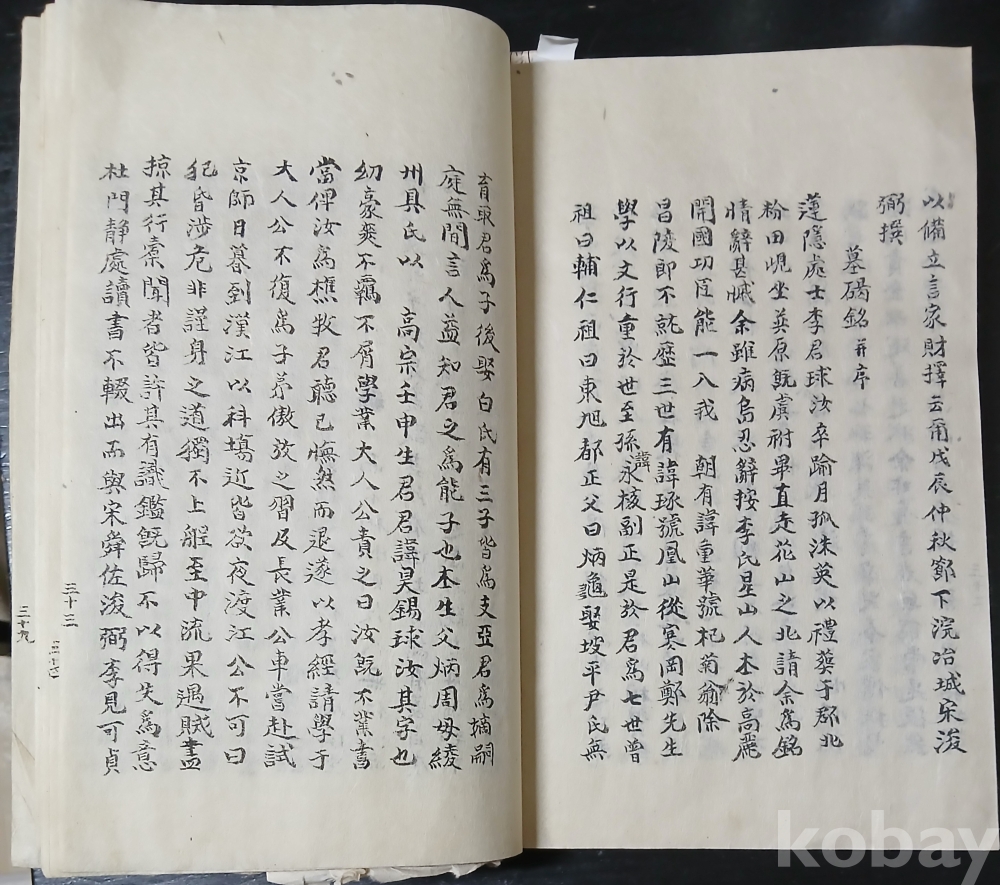 以備立言家財擇云爾戊辰仲秋節下浣冶城宋浚
弼撰
墓碣銘并序
蓮隱處士李君球汝卒踰月孤洙英以禮葬于郡北
粉田峴坐英原旣虞祔畢直走花山之北請余爲銘
情辭甚慽余雖病烏忍辭按李氏星山人本於高麗
開國功臣能一入我 朝有諱重華號杞菊翁除
昌陵郎不就歷三世有諱琢號凰山從寒岡鄭先生
學以文行重於世至孫諱永核副正是於君爲七世曾
祖曰輔仁祖曰東旭都正父曰炳龜娶坡平尹氏無
育取君爲子後娶白氏有三子皆爲支亞君爲嫡嗣
庭無間言人益知君之爲能子也本生父炳周母綾
州具氏以 高宗壬申生君君諱昊錫球汝其字也
幼豪爽不羈不屑學業大人公責之曰汝旣不業書
當俾汝爲樵牧君聽已憮然而退遂以孝經請學于
大人公不復爲子弟傲放之習及長業公車嘗赴試
京師日暮到漢江以科場近皆欲夜渡江公不可曰
犯昏涉危非謹身之道獨不上舡至中流果遇賊盡
掠其行橐聞者皆許其有識鑑旣歸不以得失爲意
杜門靜處讀書不輟出而與宋舜佐浚弼李見可貞
三十三
三十九
kobay